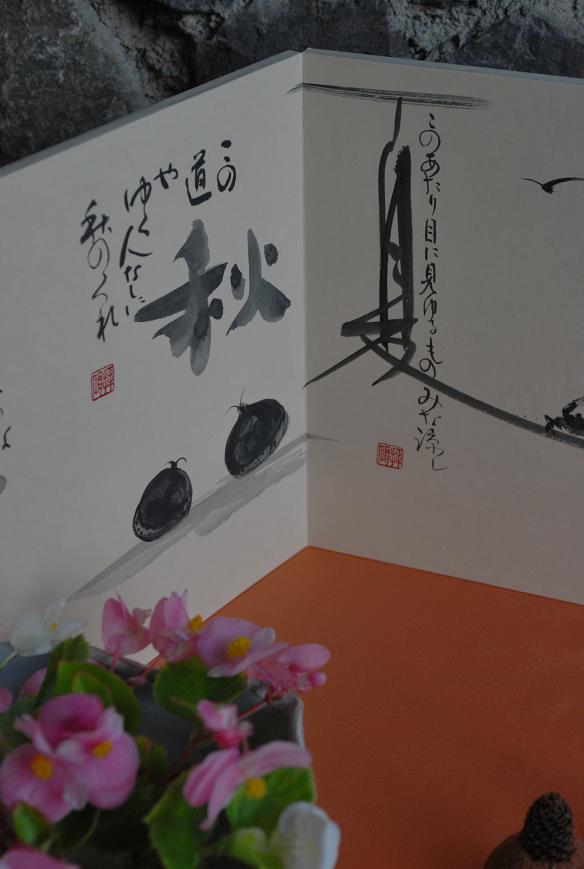 夏
このあたり目に見ゆるものみな涼し
秋
この
道
や
ゆく人なしに
秋のくれ